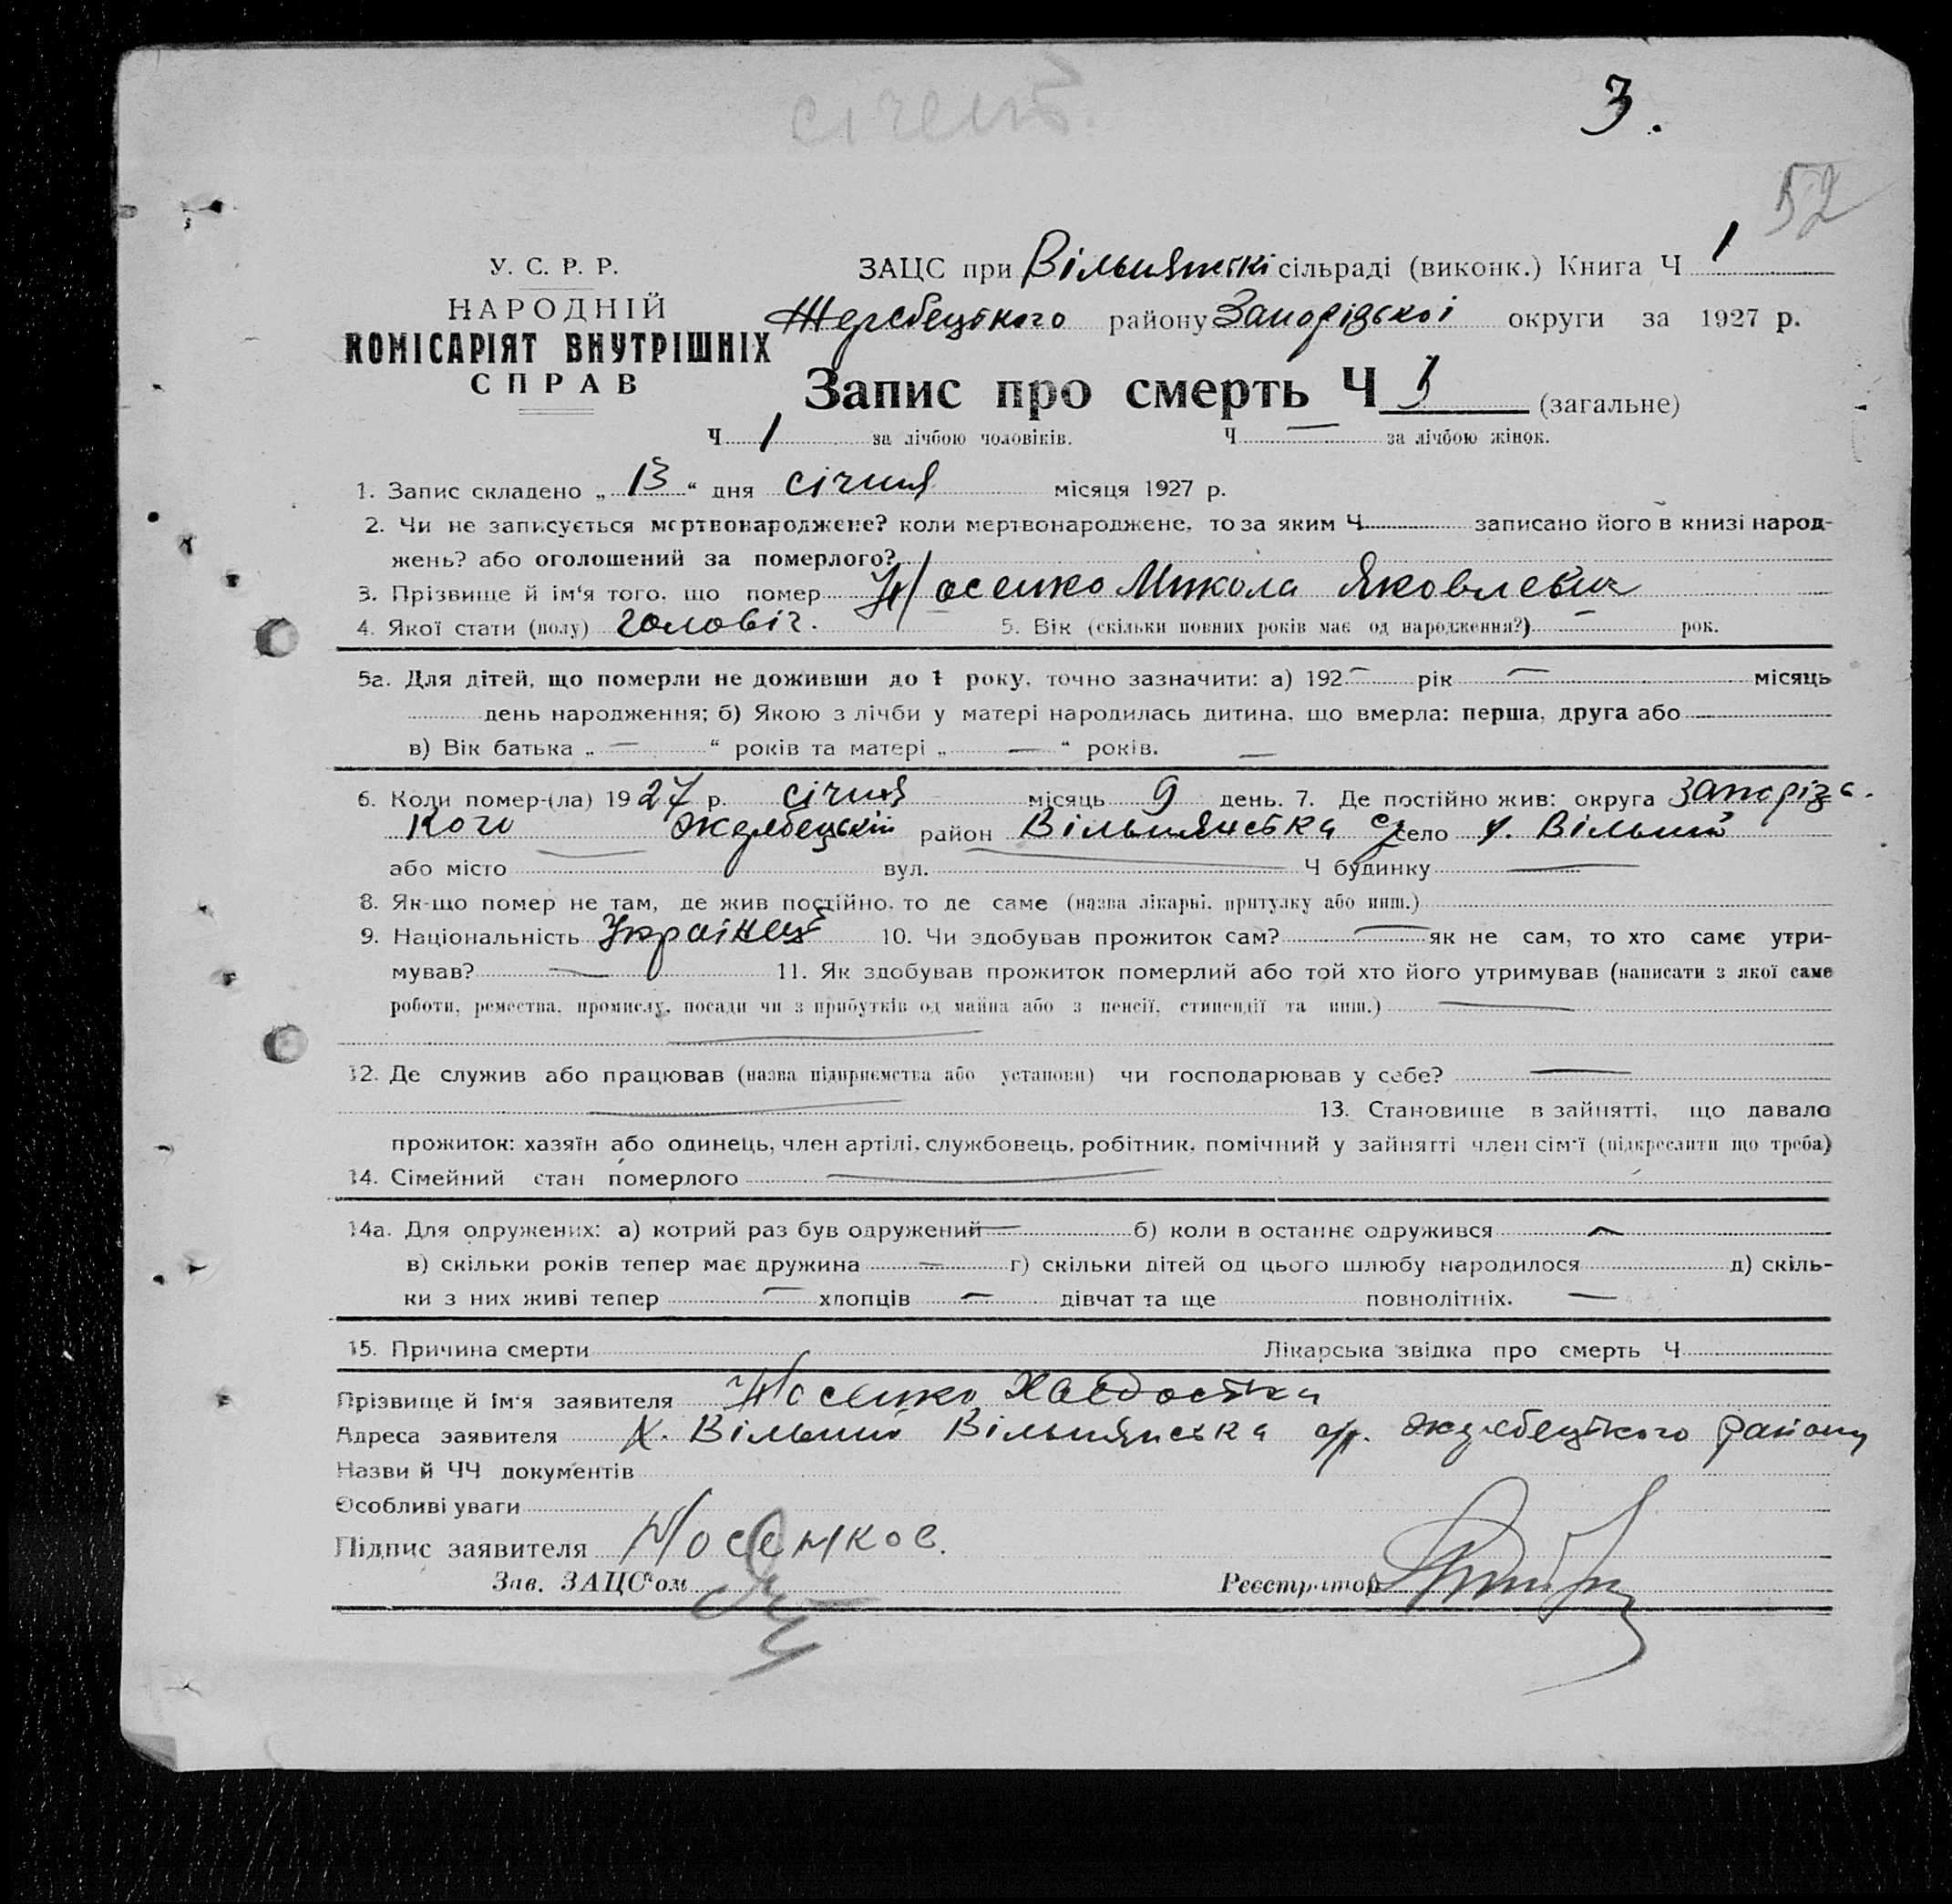 січень.
3.
52
У. С. Р. Р.
НАРОДНІЙ
КОМІСАРІЯТ ВНУТРІШНІХ
СПРАВ
ЗАЦС при Вільнянській сільраді (виконк.) Книга Ч 1
Жеребецького району Запорізької округи за 1927 р.
Запис про смерть Ч 3 (загальне)
Ч 1 за лічбою чоловіків. Ч — за лічбою жінок.
1. Запис складено „ 13 “ дня січня місяця 1927 р.
2. Чи не записується мертвонароджене? коли мертвонароджене, то за яким Ч записано його в книзі народ-
жень? або оголошений за померлого?
3. Прізвище й ім‘я того, що помер Носенко Микола Яковлевич
4. Якої стати (полу) чоловіч. 5. Вік (скільки повних років має од народження?) — рок.
5а. Для дітей, що померли не доживши до 1 року, точно зазначити: а) 192 — рік — місяць
день народження; б) Якою з лічби у матері народилась дитина, що вмерла: перша, друга або
в) Вік батька „ — “ років та матері „ — “ років. —
6. Коли помер-(ла) 1927 р. січня місяць 9 день. 7. Де постійно жив: округа Запорізь-
кого Жеребецький район Вільнянська с село х. Вільний
або місто — вул. — Ч будинку —
8. Як-що помер не там, де жив постійно, то де саме (назва лікарні, притулку або инш.)
9. Національність Українець 10. Чи здобував прожиток сам? — як не сам, то хто саме утри-
мував? — 11. Як здобував прожиток померлий або той хто його утримував (написати з якої саме
роботи, ремества, промислу, посади чи з прибутків од майна або з пенсії, стипендії та инш.) —
—
12. Де служив або працював (назва підприємства або установи) чи господарював у себе? —
— 13. Становище в зайнятті, що давало
прожиток: хазяїн або одинець, член артілі, службовець, робітник, помічний у зайнятті член сім‘ї (підкреслити що треба)
14. Сімейний стан померлого —
14а. Для одружених: а) котрий раз був одружений — б) коли в останнє одружився —
в) скільки років тепер має дружина — г) скільки дітей од цього шлюбу народилося д) скіль-
ки з них живі тепер — хлопців — дівчат та ще повнолітніх. —
15. Причина смерти Лікарська звідка про смерть Ч
Прізвище й ім‘я заявителя Носенко
Адреса заявителя х. Вільний Вільнянська с/р. Жеребецького району
Назви й ЧЧ документів
Особливі уваги
Підпис заявителя Носенкос.
Зав. ЗАЦС‘ом
Реєстратор